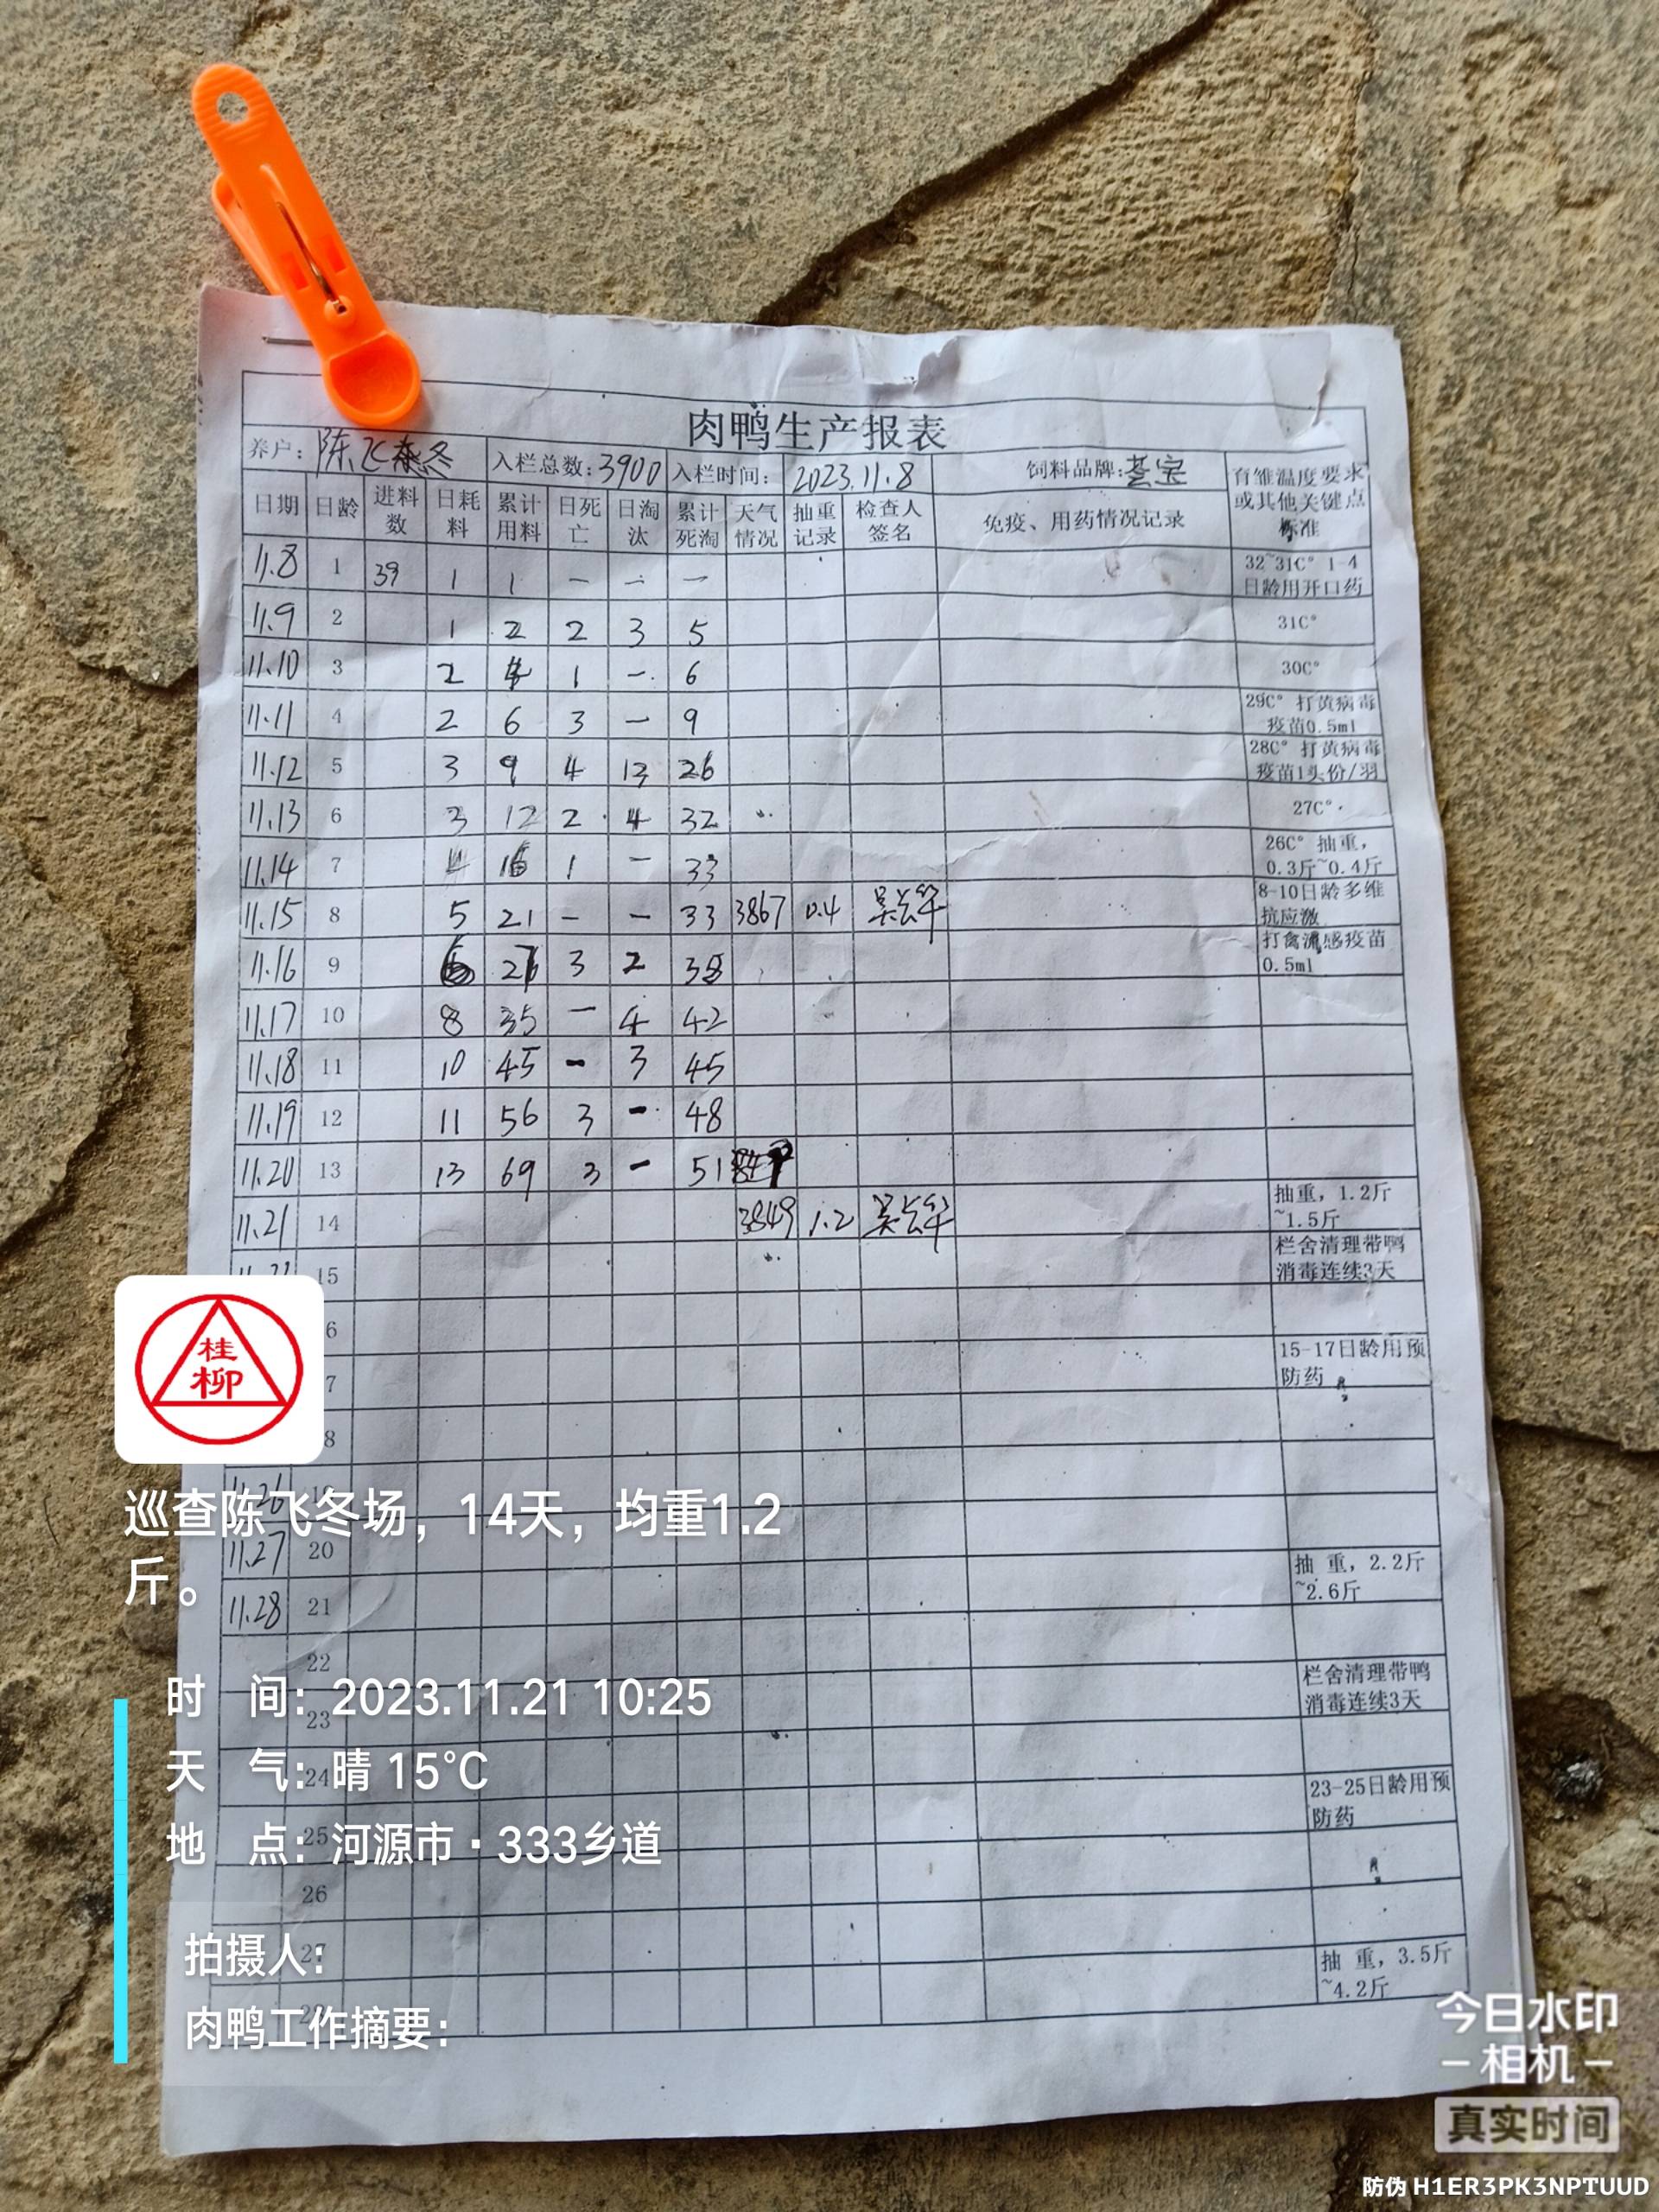 肉鸭生产报表
养户: 陈飞冬 入栏总数: 3900 入栏时间: 2023.11.8 饲料品牌: 荟宝 育雏温度要求或其他关键点标准
日期 日龄 进料数 日耗料 累计用料 日死亡 日淘汰 累计死淘 天气情况 抽重记录 检查人签名 免疫、用药情况记录
11.8 1 39 1 1 — — — 32~31C° 1-4日龄用开口药
11.9 2 1 2 2 3 5 31C°
11.10 3 2 4 1 — 6 30C°
11.11 4 2 6 3 — 9 29C° 打黄病毒疫苗0.5ml
11.12 5 3 9 4 13 26 28C° 打黄病毒疫苗1头份/羽
11.13 6 3 12 2 4 32 27C°
11.14 7 4 16 1 — 33 26C° 抽重，0.3斤~0.4斤
11.15 8 5 21 — — 33 3867 0.4 8-10日龄多维抗应激
11.16 9 6 27 3 2 38 打禽流感疫苗0.5ml
11.17 10 8 35 — 4 42
11.18 11 10 45 — 3 45
11.19 12 11 56 3 — 48
11.20 13 13 69 3 — 51
11.21 14 3849 1.2 抽重，1.2斤~1.5斤
15 栏舍清理带鸭消毒连续3天
6
7 15-17日龄用预防药
8
11.26
11.27 20 抽 重，2.2斤~2.6斤
11.28 21
22
23 栏舍清理带鸭消毒连续3天
24
25 23-25日龄用预防药
26
27
抽 重，3.5斤~4.2斤
桂
柳
巡查陈飞冬场，14天，均重1.2
斤。
时 间：2023.11.21 10:25
天 气：晴 15℃
地 点：河源市·333乡道
拍摄人：
肉鸭工作摘要：
今日水印
相机
真实时间
防伪 H1ER3PK3NPTUUD